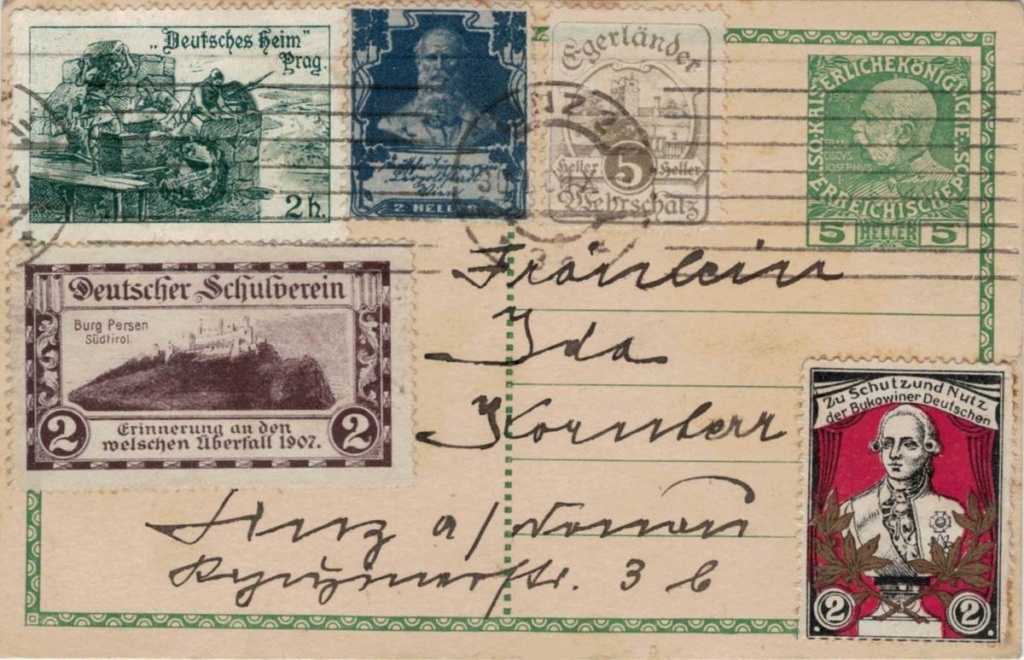 „Deutsches Heim"
Prag.
2 h.
2 HELLER
Egerländer
Heller 5 Heller
Wehrschatz
1908
KAISERLICHE KÖNIGLICHE
ÖSTERREICHISCHE POST
5 HELLER 5
Deutscher Schulverein
Burg Persen
Südtirol.
2 2
Erinnerung an den
welschen Überfall 1907.
Zu Schutz und Nutz
der Bukowiner Deutschen
2 2
Fräulein
Ida
Kornherr
Linz a/Donau
3 b